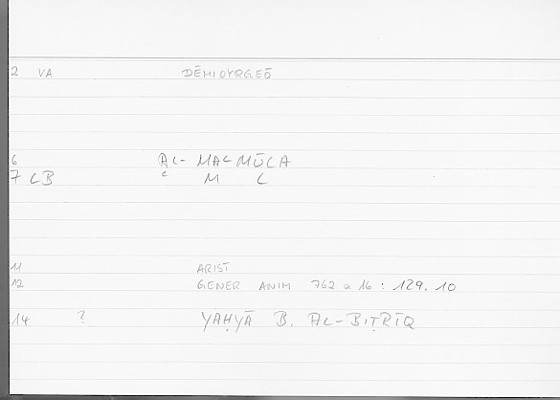 2 VA DĒMIOYRGEŌ
6 AL- MAʿMŪLA
7 LB ʿ M L
11 ARIST
12 GENER ANIM 762 a 16 : 129.10
14 ? YAḤYĀ B. AL-BIṬRĪQ